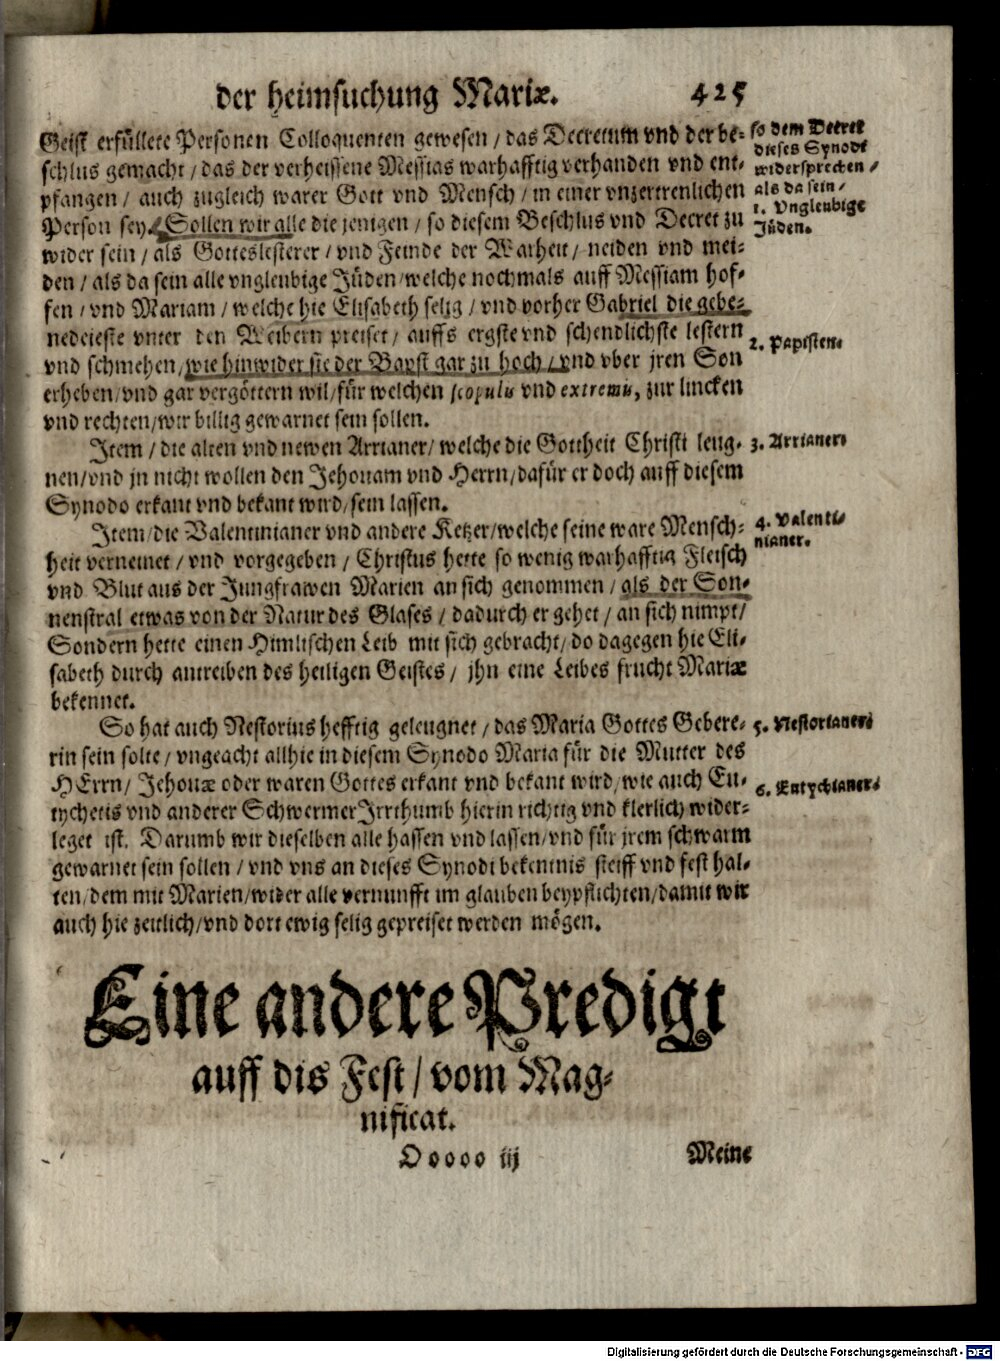 der heimsuchung Mariæ. 425
Geist erfüllete Personen Colloquenten gewesen / das Decretum vnd der be-
schlus gemacht / das der verheissene Messias warhafftig verhanden vnd ent-
pfangen / auch zugleich warer Gott vnd Mensch / in einer vnzertrenlichen
Person sey. Sollen wir alle die jenigen / so diesem Beschlus vnd Decret zu
wider sein / als Gotteslesterer / vnd Feinde der Warheit / neiden vnd mei-
den / als da sein alle vngleubige Jüden / welche nochmals auff Messiam hof-
fen / vnd Mariam / welche hie Elisabeth selig / vnd vorher Gabriel die gebe-
nedeieste vnter den Weibern preiset / auffs ergste vnd schendlichste lestern
vnd schmehen / wie hinwider sie der Bapst gar zu hoch / vnd vber jren Son
erheben / vnd gar vergöttern wil / für welchen scopulis vnd extremis, zur lincken
vnd rechten / wir billig gewarnet sein sollen.
Item / die alten vnd newen Arrianer / welche die Gottheit Christi leug-
nen / vnd jn nicht wollen den Jehouam vnd Herrn / dafür er doch auff diesem
Synodo erkant vnd bekant wird / sein lassen.
Item / die Valentinianer vnd andere Ketzer / welche seine ware Mensch-
heit verneinet / vnd vorgegeben / Christus hette so wenig warhafftig Fleisch
vnd Blut aus der Jungfrawen Marien an sich genommen / als der Son-
nenstral etwas von der Natur des Glases / dadurch er gehet / an sich nimpt /
Sondern hette einen Himlischen Leib mit sich gebracht / do dagegen hie Eli-
sabeth durch antreiben des heiligen Geistes / jhn eine Leibes frucht Mariæ
bekennet.
So hat auch Nestorius hefftig geleugnet / das Maria Gottes Gebere-
rin sein solte / vngeacht allhie in diesem Synodo Maria für die Mutter des
HErrn / Jehouæ oder waren Gottes erkant vnd bekant wird / wie auch Eu-
tychetis vnd anderer Schwermer Irrthumb hierin richtig vnd klerlich wider-
leget ist. Darumb wir dieselben alle hassen vnd lassen / vnd für jrem schwarm
gewarnet sein sollen / vnd vns an dieses Synodi bekentnis steiff vnd fest hal-
ten / dem mit Marien / wider alle vernunfft im glauben beypflichten / damit wir
auch hie zeitlich / vnd dort ewig selig gepreiset werden mögen.
so dem Decret
dieses Synodi
widersprechen /
als da sein /
1. Vngleubige
Jüden.
2. Papisten.
3. Arrianer.
4. Valenti-
nianer.
5. Nestorianer.
6. Eutychianer.
Eine andere Predigt
auff dis Fest / vom Mag-
nificat.
Ooooo iij Meine
Digitalisierung gefördert durch die Deutsche Forschungsgemeinschaft - DFG